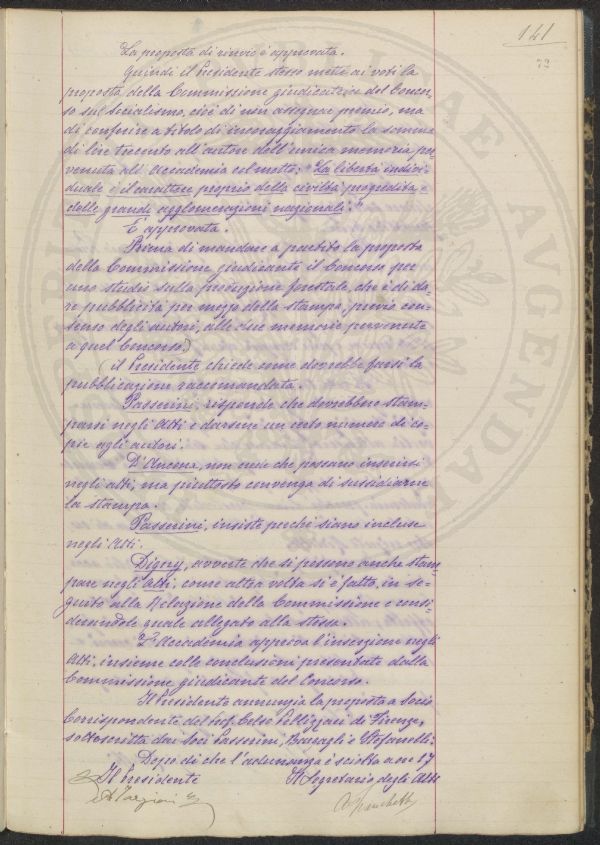 141
72
La proposta di rinvio è approvata.
Quindi il Presidente stesso mette ai voti la
proposta della Commissione giudicatrice del Concor-
so sul Socialismo, cioè di non assegnar premio, ma
di conferire a titolo di incoraggiamento la somma
di lire trecento all'autore dell'unica memoria per-
venuta all'Accademia col motto: "La libertà indivi-
duale è il carattere proprio della civiltà progredita e
delle grandi agglomerazioni nazionali."
E' approvata.
Prima di mandare a partito la proposta
della Commissione giudicante il Concorso per
uno studio sulla protezione forestale, che è di da-
re pubblicità per mezzo della stampa, previo con-
senso degli autori, alle due memorie pervenute
a quel Concorso)
(il Presidente chiede come dovrebbe farsi la
pubblicazione raccomandata.
Passerini, risponde che dovrebbero stam-
parsi negli Atti e darsene un certo numero di co-
pie agli autori.
D'Ancona, non crede che possano inserirsi
negli atti, ma piuttosto convenga di sussidiarne
la stampa.
Passerini, insiste perchè siano incluse
negli Atti.
Digny, avverte che si possono anche stam-
pare negli Atti, come altra volta si è fatto, in se-
guito alla Relazione della Commissione e consi-
derandole quale allegato alla stessa.
L'Accademia approva l'inserzione negli
Atti, insieme colle conclusioni presentate dalla
Commissione giudicante del Concorso.
Il Presidente annunzia la proposta a Socio
Corrispondente del prof. Celso Pellizzari di Firenze,
sottoscritta dai Soci Passerini, Bargagli e Stefanelli.
Dopo di che l'adunanza è sciolta a ore 17
Il Presidente Il Segretario degli Atti
A Targioni